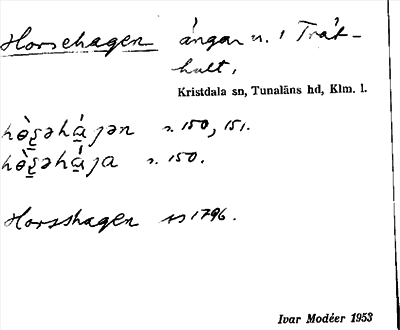 Horsehagen ängar n. i Trät-
hult,
Kristdala sn, Tunaläns hd, Klm. l.
hɵ̀s̱əhá̱jən s. 150, 151.
hɵ̀s̱əhá̱ja s. 150.
Horsshagen ss 1796.
Ivar Modéer 1953